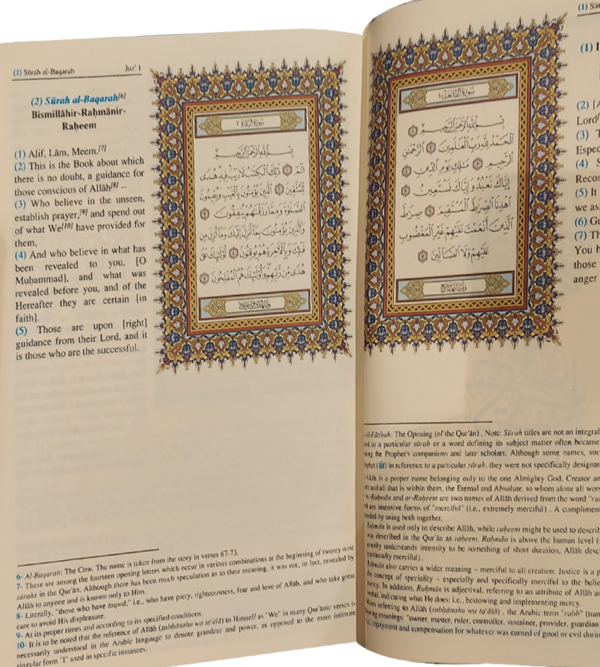 (2) Sūrah al-Baqarah
Juz' 1
(2) Sūrah al-Baqarah[6]
Bismillāhir-Raḥmānir-
Raḥeem
(1) Alif, Lām, Meem.[7]
(2) This is the Book about which
there is no doubt, a guidance for
those conscious of Allāh[8] –
(3) Who believe in the unseen,
establish prayer,[9] and spend out
of what We[10] have provided for
them,
(4) And who believe in what has
been revealed to you, [O
Muḥammad], and what was
revealed before you, and of the
Hereafter they are certain [in
faith].
(5) Those are upon [right]
guidance from their Lord, and it
is those who are the successful.
سورة البقرة
بسم الله الرحمن الرحيم
الم ۝ ذلك الكتاب لا ريب فيه هدى
للمتقين ۝ الذين يؤمنون بالغيب ويقيمون
الصلوة ومما رزقناهم ينفقون ۝
والذين يؤمنون بما أنزل إليك وما أنزل من
قبلك وبالآخرة هم يوقنون ۝ أولئك على
هدى من ربهم وأولئك هم المفلحون ۝
6- Al-Baqarah: The Cow. The name is taken from the story in verses 67-73.
7- These are among the fourteen opening letters which occur in various combinations at the beginning of twenty-nine
sūrahs in the Qur'ān. Although there has been much speculation as to their meaning, it was not, in fact, revealed by
Allāh to anyone and is known only to Him.
8- Literally, "those who have taqwā," i.e., who have piety, righteousness, fear and love of Allāh, and who take great
care to avoid His displeasure.
9- At its proper times and according to its specified conditions.
10- It is to be noted that the reference of Allāh (subḥānahu wa taʿālā) to Himself as "We" in many Qur'anic verses is
necessarily understood in the Arabic language to denote grandeur and power, as opposed to the more intimate
singular form "I" used in specific instances.
(1) Sū
سورة الفاتحة
بسم الله الرحمن الرحيم ۝
الحمد لله رب العالمين ۝ الرحمن
الرحيم ۝ ملك يوم الدين ۝
إياك نعبد وإياك نستعين ۝
اهدنا الصراط المستقيم ۝ صراط
الذين أنعمت عليهم غير المغضوب
عليهم ولا الضالين ۝
(1)
(2) [A
Lord
(3)
Espec
(4)
Recom
(5) It
we as
(6) Gu
(7) Th
You h
those
anger
al-Fātiḥah: The Opening (of the Qur'ān). Note: Sūrah titles are not an integral
in a particular sūrah or a word defining its subject matter often became
the Prophet's companions and later scholars. Although some names, suc
(ﷺ) in reference to a particular sūrah, they were not specifically designa
Allāh is a proper name belonging only to the one Almighty God, Creator an
and all that is within them, the Eternal and Absolute, to whom alone all wor
ar-Raḥmān and ar-Raḥeem are two names of Allāh derived from the word "ra
are intensive forms of "merciful" (i.e., extremely merciful). A compliment
by using both together.
Raḥmān is used only to describe Allāh, while raḥeem might be used to describ
was described in the Qur'ān as raḥeem. Raḥmān is above the human level (
understands intensity to be something of short duration, Allāh desc
merciful).
Raḥmān also carries a wider meaning – merciful to all creation. Justice is a p
the concept of speciality – especially and specifically merciful to the belie
mercy. In addition, Raḥmān is adjectival, referring to an attribute of Allāh an
verbal, indicating what He does: i.e., bestowing and implementing mercy.
referring to Allāh (subḥānahu wa taʿālā), the Arabic term "rabb" (tran
meanings: "owner, master, ruler, controller, sustainer, provider, guardian
repayment and compensation for whatever was earned of good or evil durin